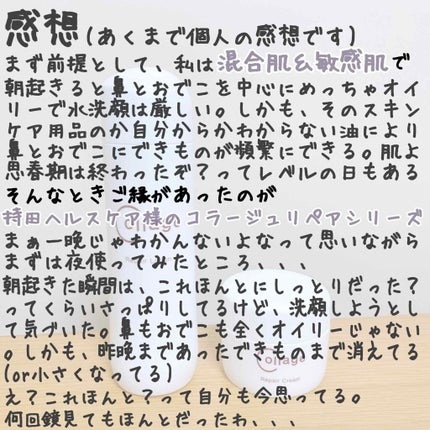 感想(あくまで個人の感想です)
まず前提として、私は混合肌&敏感肌で
朝起きると鼻とおでこを中心にめっちゃオイ
リーで水洗顔は厳しい。しかも、そのスキン
ケア用品のか自分からかわからない油により
鼻とおでこにできものが頻繁にできる。肌よ
思春期は終わったぞ?ってレベルの日もある
そんなときご縁があったのが
持田ヘルスケア様のコラージュリペアシリーズ
まぁ一晩じゃわかんないよなって思いながら
まずは夜使ってみたところ、、、
朝起きた瞬間は、これほんとにしっとりだった?
ってくらいさっぱりしてるけど、洗顔しようとし
て気づいた。鼻もおでこも全くオイリーじゃない
。しかも、昨晩まであったできものまで消えてる
(or小さくなってる)
え?これほんと?って自分も今思ってる。
何回鏡見てもほんとだったわ、、、
Collage
Collage
Repair Cream